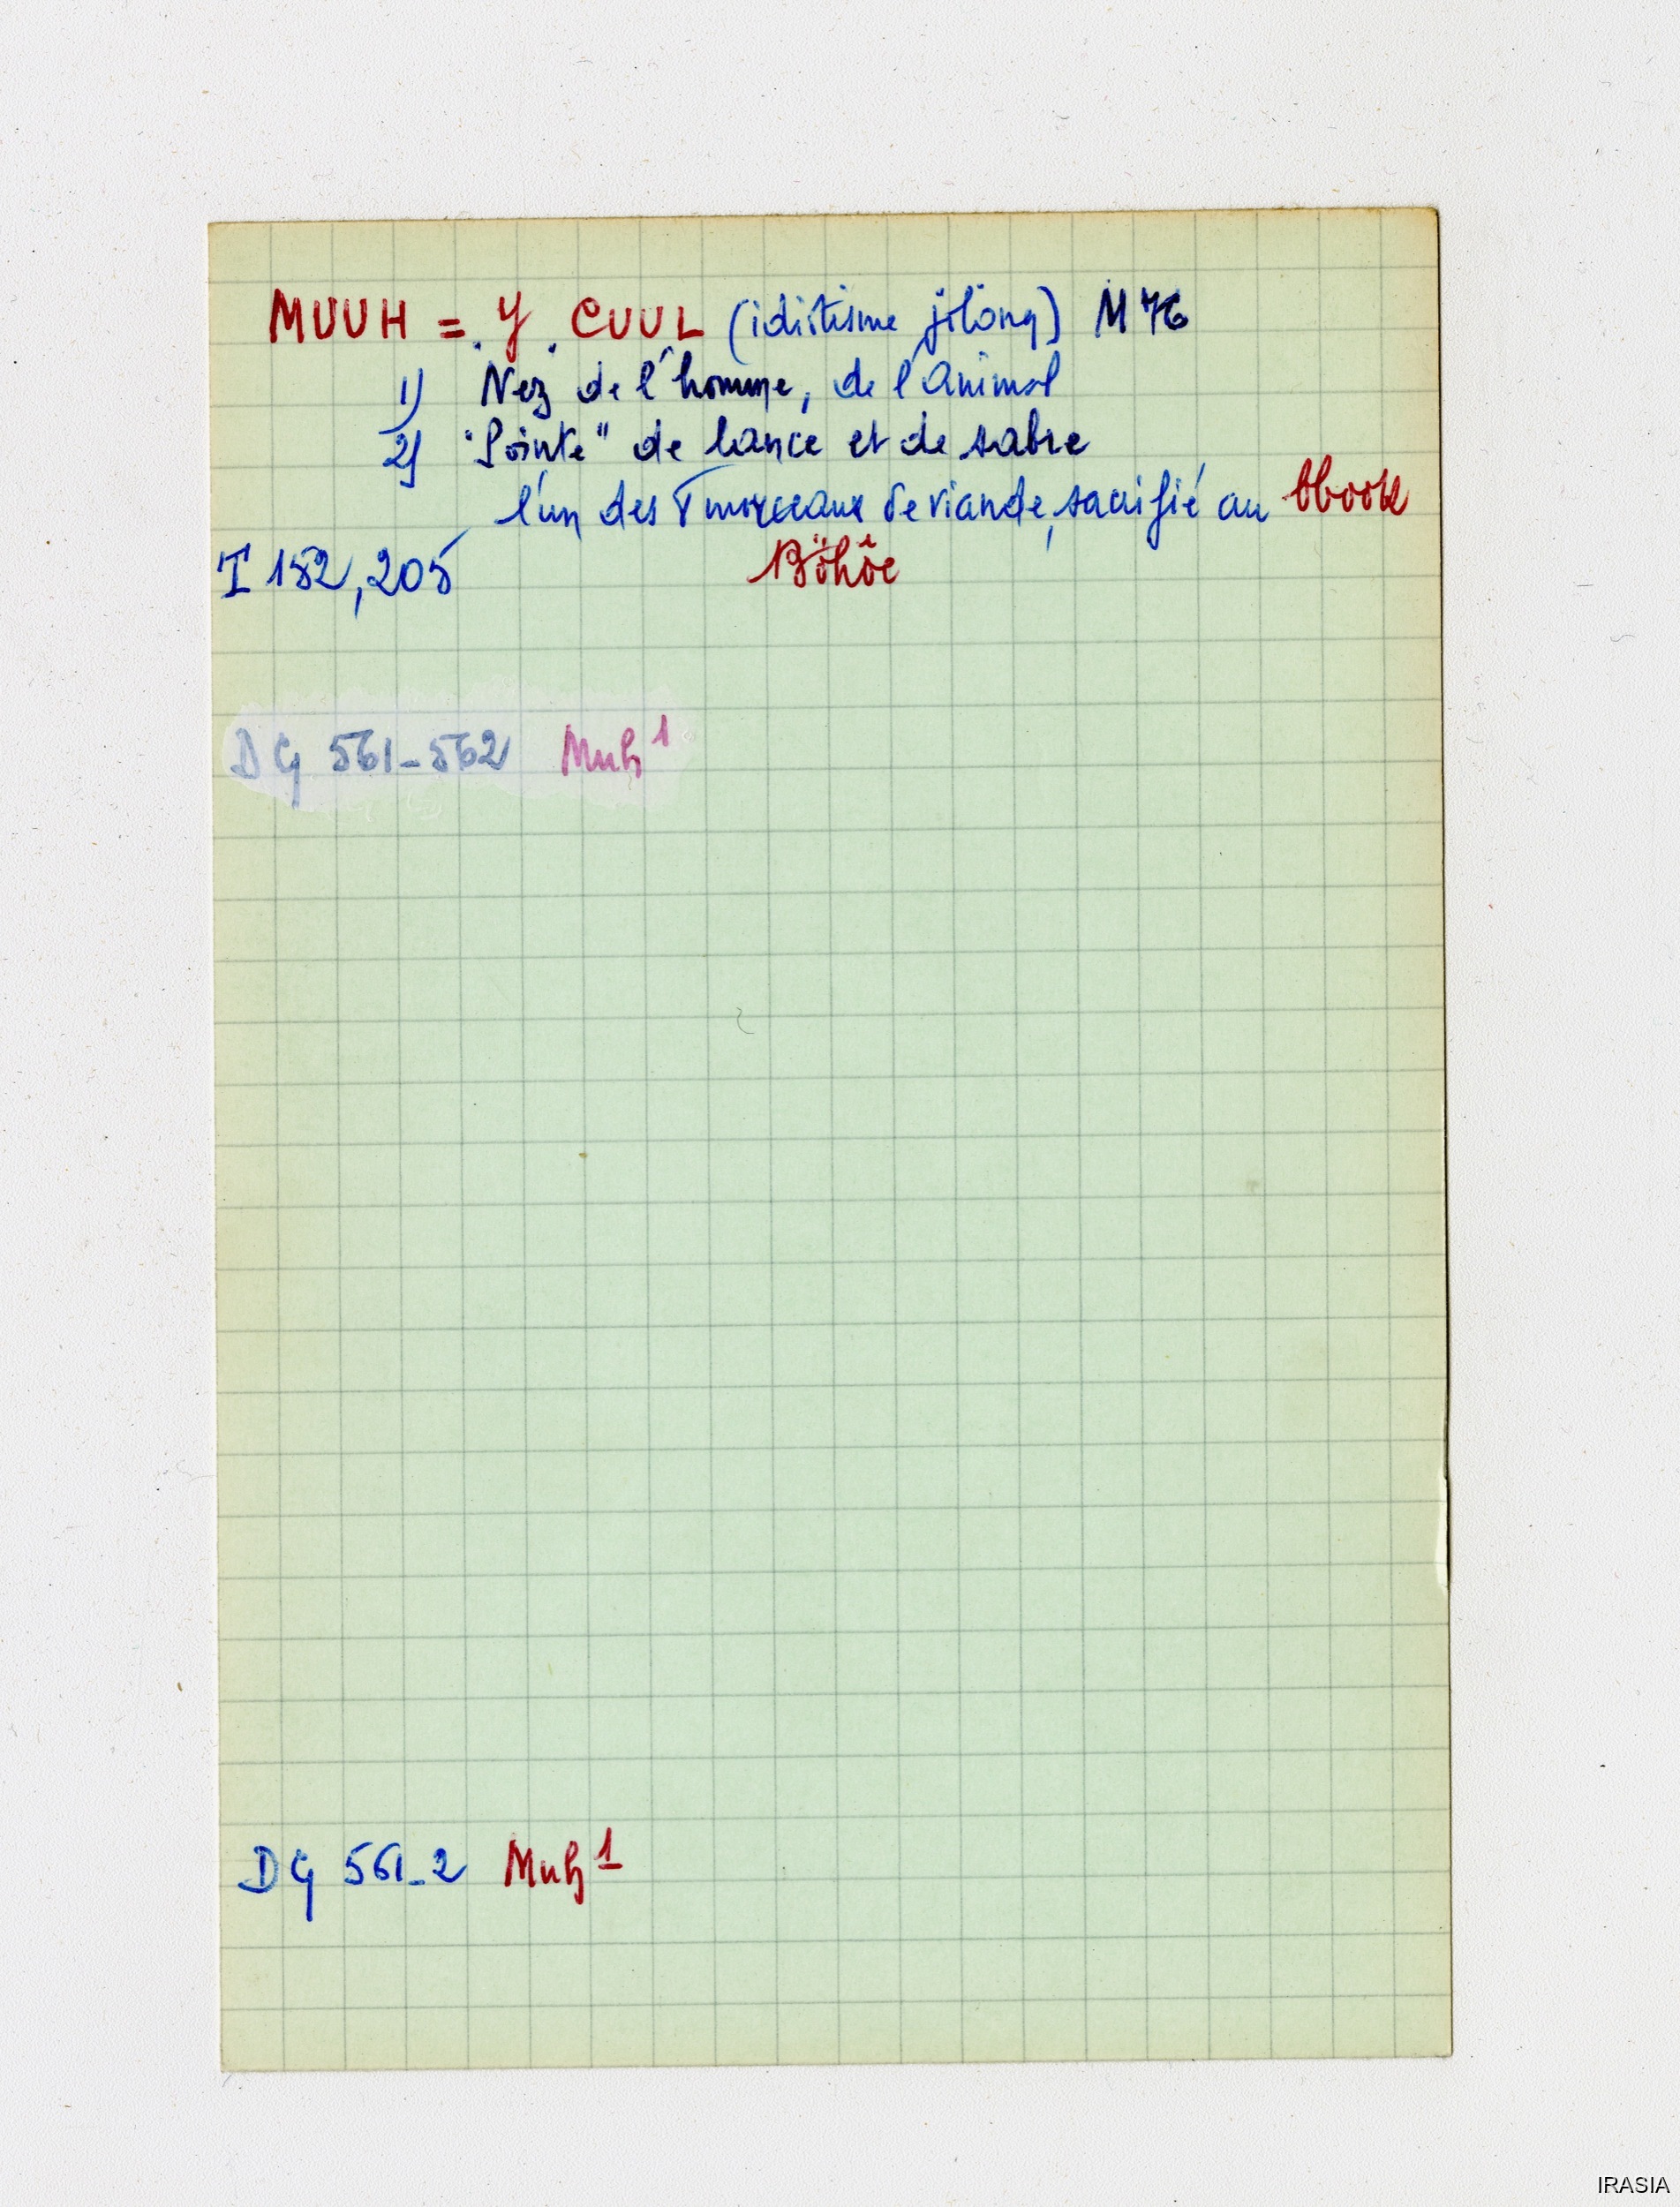 MUUH = .Y. CUUL (idiotisme jölöng) M 76
1) Nez de l'homme, de l'animal
2) "Pointe" de lance et de sabre
l'un des 5 morceaux de viande, sacrifié au bbook
Böhôe
I 152, 205
DG 561-562 Muh 1
DG 561-2 Muh 1
IRASIA